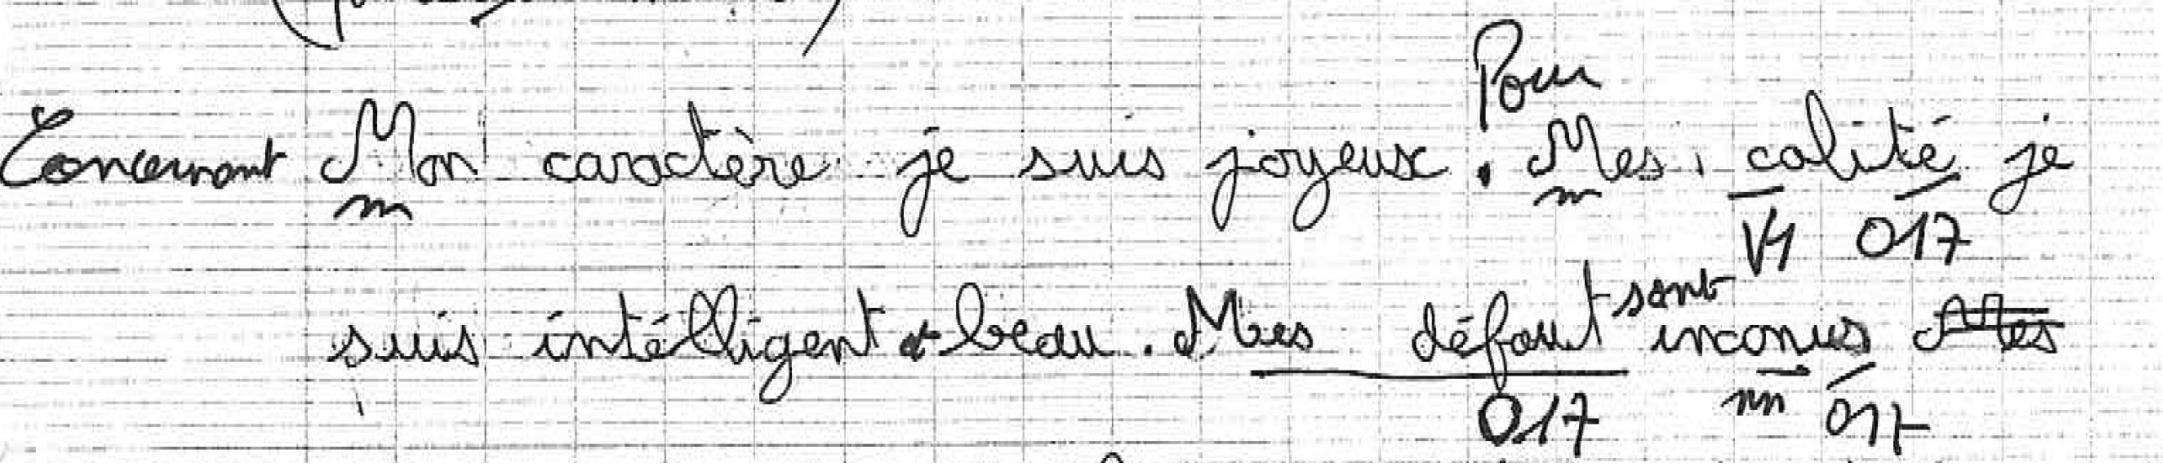 Pour
Concernant Mon caractère je suis joyeux. Mes calité je
m m V1 O17
suis intélligent et beau. Mes défaut sont inconus Mes
O17 nn O17